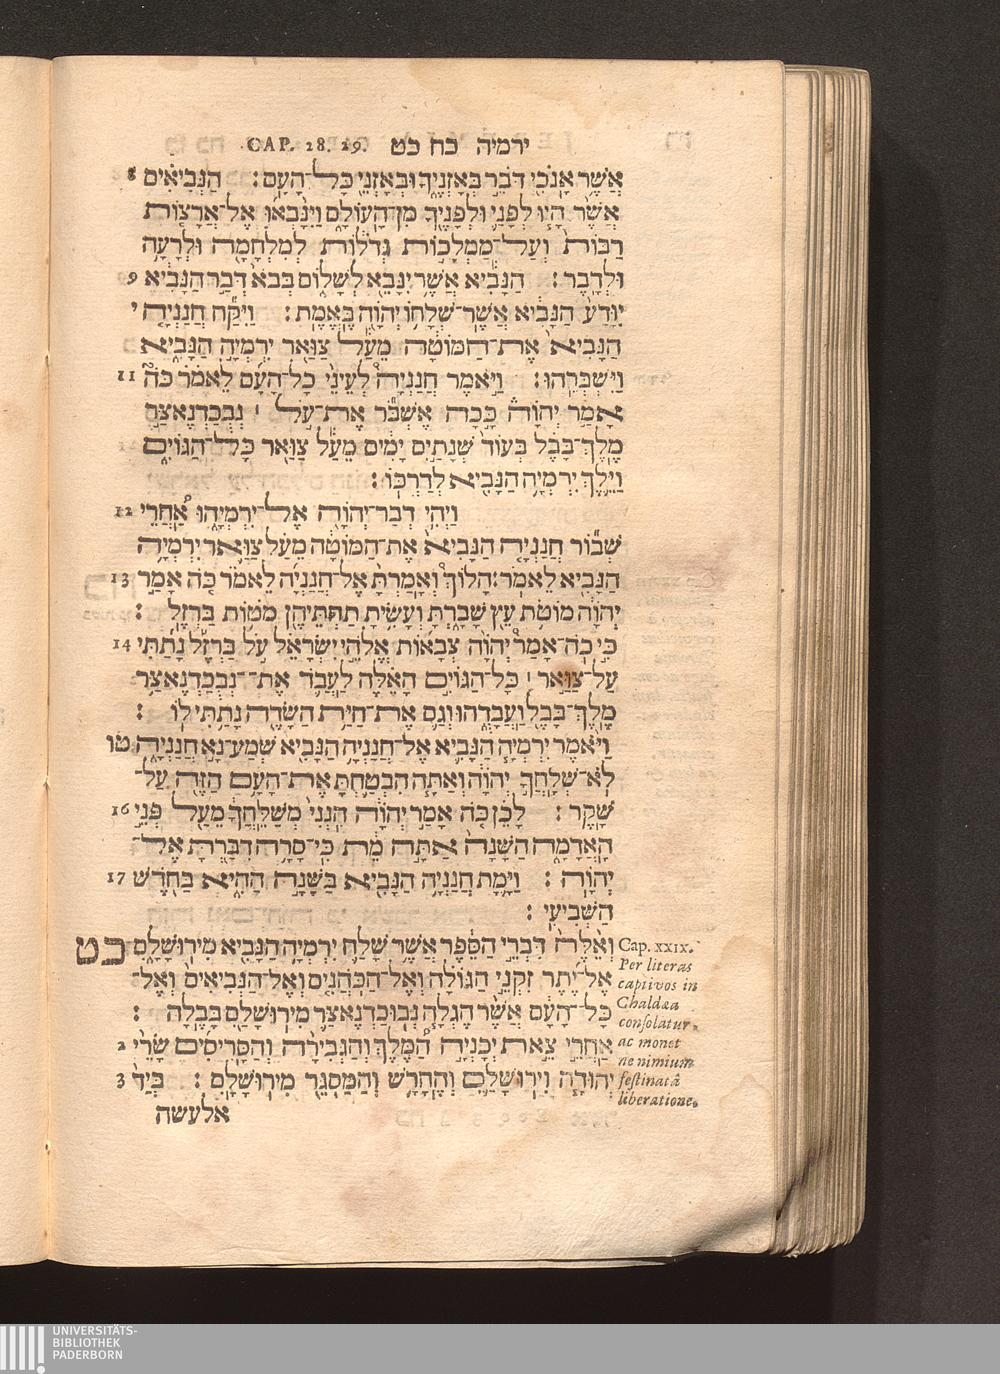 ירמיה כח כט CAP. 28. 29.
אֲשֶׁר אָנֹכִי דֹּבֵר בְּאָזְנֶיךָ וּבְאָזְנֵי כָּל־הָעָם׃ הַנְּבִיאִים 8
אֲשֶׁר הָיוּ לְפָנַי וּלְפָנֶיךָ מִן־הָעוֹלָם וַיִּנָּבְאוּ אֶל־אֲרָצוֹת
רַבּוֹת וְעַל־מַמְלָכוֹת גְּדֹלוֹת לְמִלְחָמָה וּלְרָעָה
וּלְדָבֶר׃ הַנָּבִיא אֲשֶׁר יִנָּבֵא לְשָׁלוֹם בְּבֹא דְּבַר הַנָּבִיא 9
יִוָּדַע הַנָּבִיא אֲשֶׁר־שְׁלָחוֹ יְהוָה בֶּאֱמֶת׃ וַיִּקַּח חֲנַנְיָה י
הַנָּבִיא אֶת־הַמּוֹטָה מֵעַל צַוַּאר יִרְמְיָה הַנָּבִיא
וַיִּשְׁבְּרֵהוּ׃ וַיֹּאמֶר חֲנַנְיָה לְעֵינֵי כָל־הָעָם לֵאמֹר כֹּה 11
אָמַר יְהוָה כָּכָה אֶשְׁבֹּר אֶת־עֹל ׀ נְבֻכַדְנֶאצַּר
מֶלֶךְ־בָּבֶל בְּעוֹד שְׁנָתַיִם יָמִים מֵעַל צַוַּאר כָּל־הַגּוֹיִם
וַיֵּלֶךְ יִרְמְיָה הַנָּבִיא לְדַרְכּוֹ׃
וַיְהִי דְבַר־יְהוָה אֶל־יִרְמְיָהוּ אַחֲרֵי 12
שְׁבוֹר חֲנַנְיָה הַנָּבִיא אֶת־הַמּוֹטָה מֵעַל צַוַּאר יִרְמְיָה
הַנָּבִיא לֵאמֹר׃ הָלוֹךְ וְאָמַרְתָּ אֶל־חֲנַנְיָה לֵאמֹר כֹּה אָמַר 13
יְהוָה מוֹטֹת עֵץ שָׁבָרְתָּ וְעָשִׂיתָ תַחְתֵּיהֶן מֹטוֹת בַּרְזֶל׃
כִּי כֹה־אָמַר יְהוָה צְבָאוֹת אֱלֹהֵי יִשְׂרָאֵל עֹל בַּרְזֶל נָתַתִּי 14
עַל־צַוַּאר ׀ כָּל־הַגּוֹיִם הָאֵלֶּה לַעֲבֹד אֶת־נְבֻכַדְנֶאצַּר
מֶלֶךְ־בָּבֶל וַעֲבָדֻהוּ וְגַם אֶת־חַיַּת הַשָּׂדֶה נָתַתִּי לוֹ׃
וַיֹּאמֶר יִרְמְיָה הַנָּבִיא אֶל־חֲנַנְיָה הַנָּבִיא שְׁמַע־נָא חֲנַנְיָה טו
לֹא־שְׁלָחֲךָ יְהוָה וְאַתָּה הִבְטַחְתָּ אֶת־הָעָם הַזֶּה עַל־
שָׁקֶר׃ לָכֵן כֹּה אָמַר יְהוָה הִנְנִי מְשַׁלֵּחֲךָ מֵעַל פְּנֵי 16
הָאֲדָמָה הַשָּׁנָה אַתָּה מֵת כִּי־סָרָה דִבַּרְתָּ אֶל־
יְהוָה׃ וַיָּמָת חֲנַנְיָה הַנָּבִיא בַּשָּׁנָה הַהִיא בַּחֹדֶשׁ 17
הַשְּׁבִיעִי׃
וְאֵלֶּה דִּבְרֵי הַסֵּפֶר אֲשֶׁר שָׁלַח יִרְמְיָה הַנָּבִיא מִירוּשָׁלִָם כט
אֶל־יֶתֶר זִקְנֵי הַגּוֹלָה וְאֶל־הַכֹּהֲנִים וְאֶל־הַנְּבִיאִים וְאֶל־
כָּל־הָעָם אֲשֶׁר הֶגְלָה נְבוּכַדְנֶאצַּר מִירוּשָׁלִַם בָּבֶלָה׃
אַחֲרֵי צֵאת יְכָנְיָה הַמֶּלֶךְ וְהַגְּבִירָה וְהַסָּרִיסִים שָׂרֵי 2
יְהוּדָה וִירוּשָׁלִַם וְהֶחָרָשׁ וְהַמַּסְגֵּר מִירוּשָׁלִָם׃ בְּיַד 3
אלעשה
Cap. XXIX.
Per literas
captivos in
Chaldæa
consolatur,
ac monet
ne nimium
festinatâ
liberatione.
UNIVERSITÄTS-
BIBLIOTHEK
PADERBORN